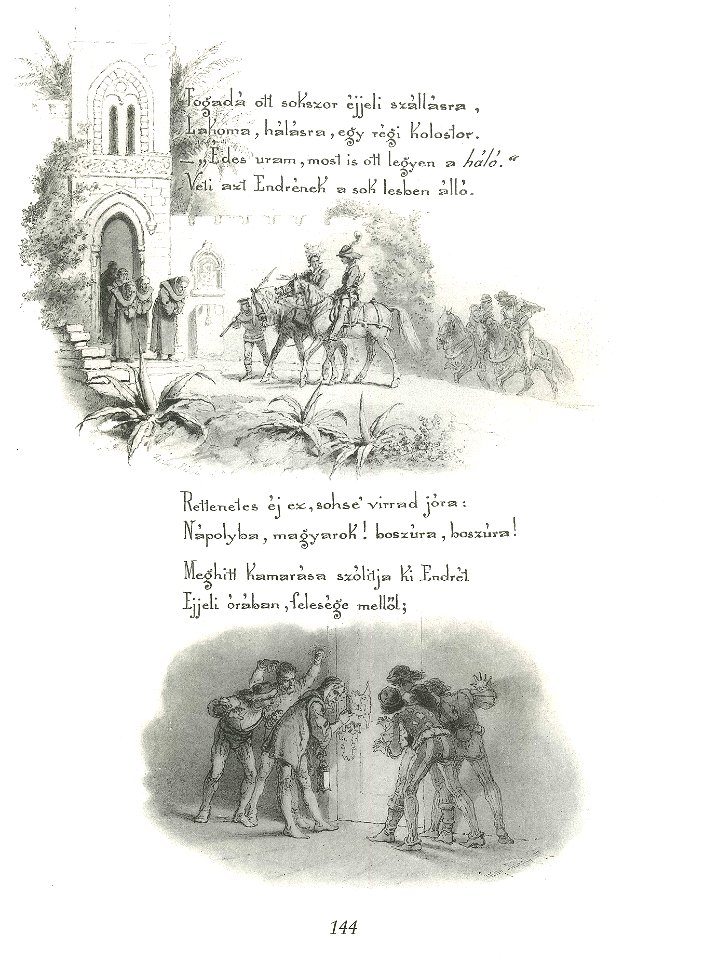 Fogadá ott sokszor éjjeli szállásra,
Lakoma, hálásra, egy régi kolostor.
– „Édes uram, most is ott legyen a háló.“
Veti azt Endrének a sok lesben álló.
Rettenetes éj ez, sohse' virrad jóra:
Nápolyba, magyarok! boszúra, boszúra!
Meghitt kamarása szólítja ki Endrét
Éjjeli órában, felesége mellől;
144